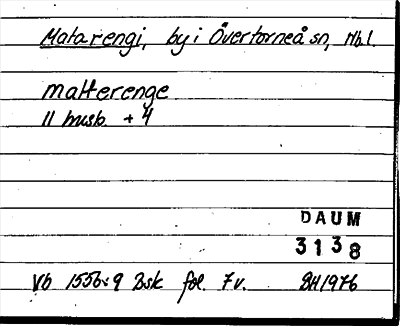 Matarengi, by i Övertorneå sn, Nb.l.
matterenge
11 husb. + 4
DAUM
3138
Vb 1556:9 Bsk fol. 7v. BH1976